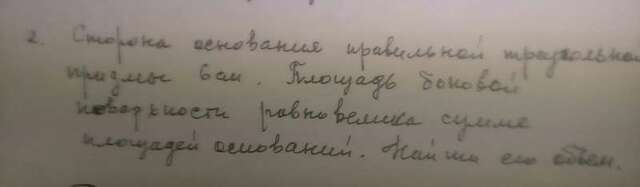 2. Сторона основания правильной треугольной
призмы 6 см. Площадь боковой
поверхности равновелика сумме
площадей оснований. Найти его объем.